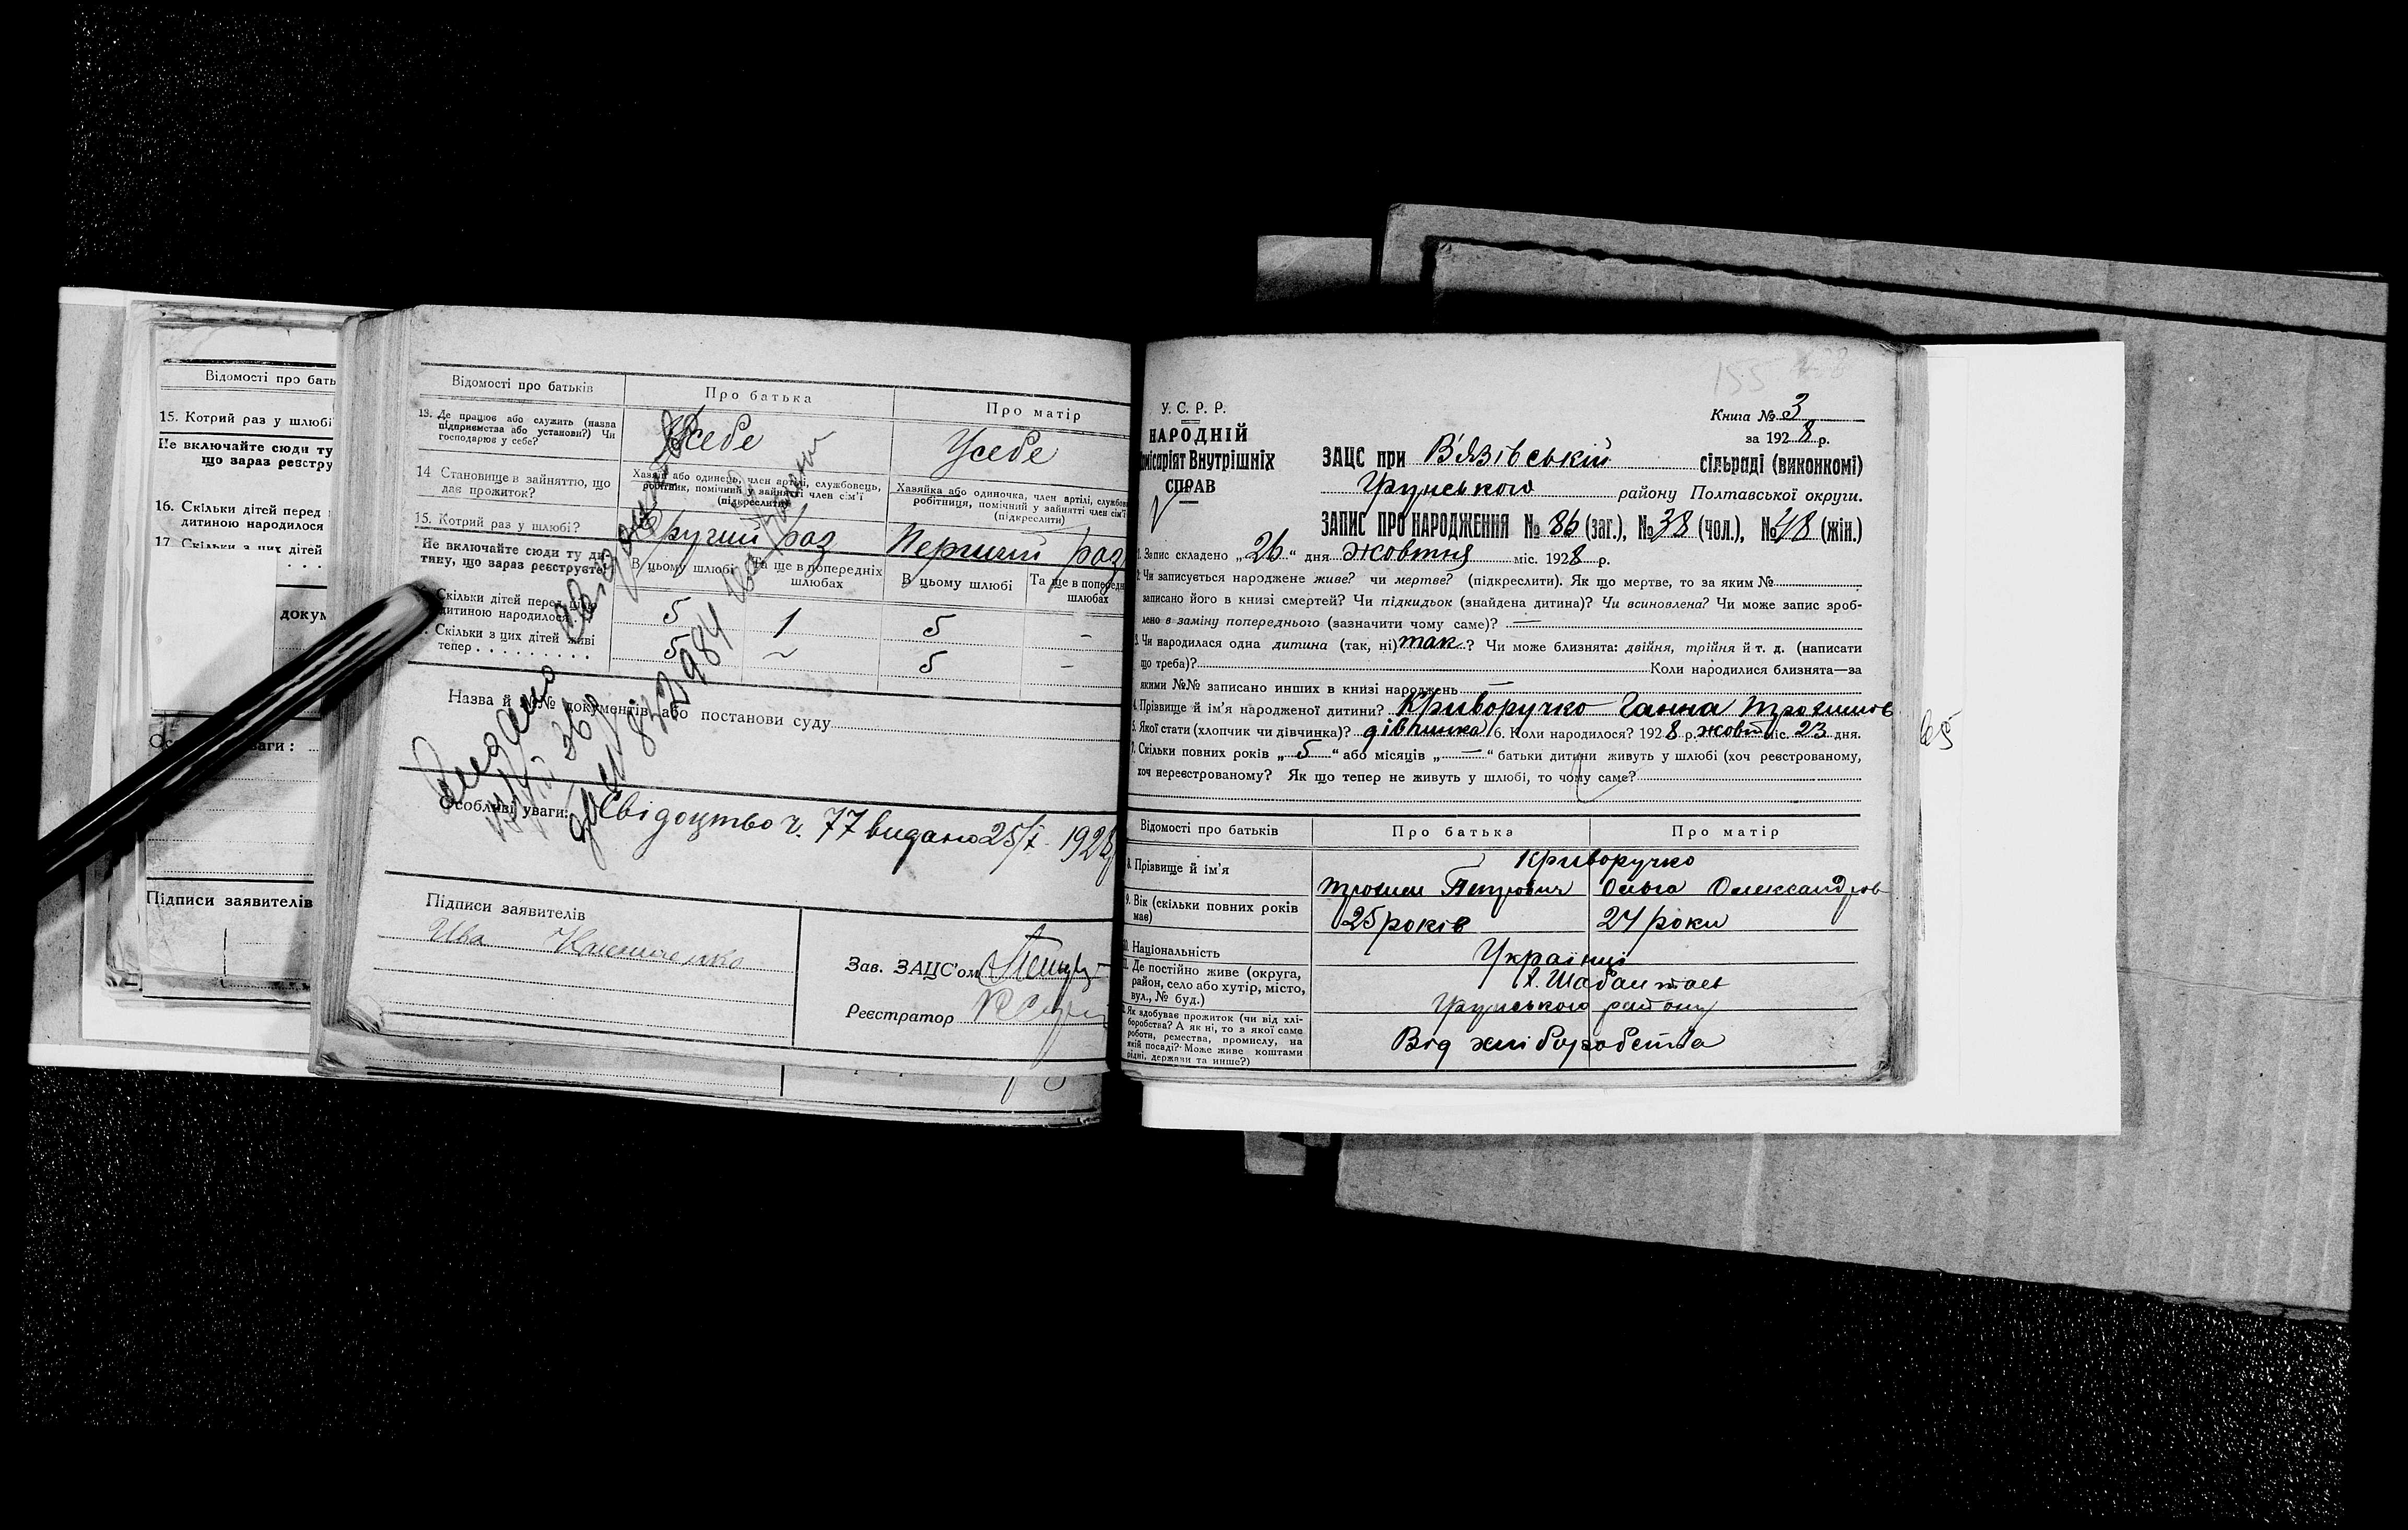 Відомості про бать
15. Котрий раз у шлюбі
Не включайте сюди ту
що зараз реєстру
16. Скільки дітей перед
дитиною народилося
17. Скільки з цих дітей
докум
уваги:
Підписи заявителів
Відомості про батьків
Про батька
Про матір
13. Де працює або служить (назва
підприємства або установи?) Чи
господарює у себе?
Усебе
Усебе
14 Становище в зайняттю, що
дає прожиток?
Хазяїн або одинець, член артілі, службовець,
робітник, помічний у зайнятті член сім'ї
(підкреслити)
Хазяйка або одиночка, член артілі, службов
робітниця, помічний у зайнятті член сім'ї
(підкреслити)
15. Котрий раз у шлюбі?
Другий раз
Перший раз
Не включайте сюди ту ди-
тину, що зараз реєструєте
В цьому шлюбі
Та ще в попередніх
шлюбах
В цьому шлюбі
Та ще в поперед
шлюбах
Скільки дітей перед цією
дитиною народилося
5 1 5 -
Скільки з цих дітей живі
тепер
5 ~ 5 -
Назва й №№ документів або постанови суду
Видано
842984
Особливі уваги: Свідоцтво ч. 77 видано 25/X 1928
Підписи заявителів
Зав. ЗАЦС'ом
Реєстратор
155
У. С. Р. Р.
НАРОДНІЙ
місаріят Внутрішніх
СПРАВ
Книга № 3
за 1928 р.
ЗАЦС при В'язівській сільраді (виконкомі)
Грунського району Полтавської округи.
ЗАПИС ПРО НАРОДЖЕННЯ № 86 (заг.), № 38 (чол.), № 48 (жін.)
1. Запис складено „26" дня жовтня міс. 1928 р.
2. Чи записується народжене живе? чи мертве? (підкреслити). Як що мертве, то за яким №
записано його в книзі смертей? Чи підкидьок (знайдена дитина)? Чи всиновлена? Чи може запис зроб-
лено в заміну попереднього (зазначити чому саме)? —
3. Чи народилася одна дитина (так, ні) так? Чи може близнята: двійня, трійня й т. д. (написати
що треба)? Коли народилися близнята—за
якими №№ записано инших в книзі народжень —
4. Прізвище й ім'я народженої дитини? Криворучко Ганна Трохимов
5. Якої стати (хлопчик чи дівчинка)? дівчинка 6. Коли народилося? 1928 р. жовт міс. 23 дня.
7. Скільки повних років „5" або місяців „—" батьки дитини живуть у шлюбі (хоч реєстрованому,
хоч нереєстрованому? Як що тепер не живуть у шлюбі, то чому саме?
Відомості про батьків
Про батька
Про матір
8. Прізвище й ім'я
Криворучко
Трохим Петрович
Ольга Олександров
9. Вік (скільки повних років
має)
25 років
24 роки
10. Національність
Українці
11. Де постійно живе (округа,
район, село або хутір, місто,
вул., № буд.)
х. Шабалтаєв
Грунського району
12. Як здобуває прожиток (чи від хлі-
боробства? А як ні, то з якої саме
роботи, ремества, промислу, на
якій посаді? Може живе коштами
рідні, держави та инше?)
Від хліборобства
65